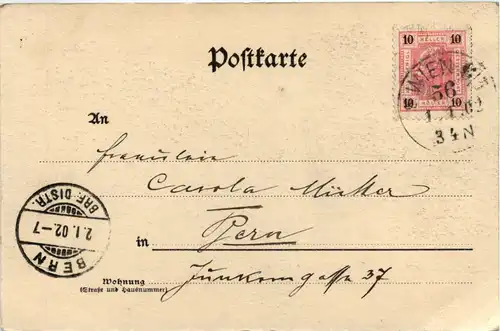 10 10
Postkarte
10 10
WIEN
56
1 02
3 4 N
An
Fräulein
Carola
Bern
BERN
2.I.02-7
BRF. DISTR.
in
Junkerngasse 37
Wohnung
(Straße und Hausnummer)